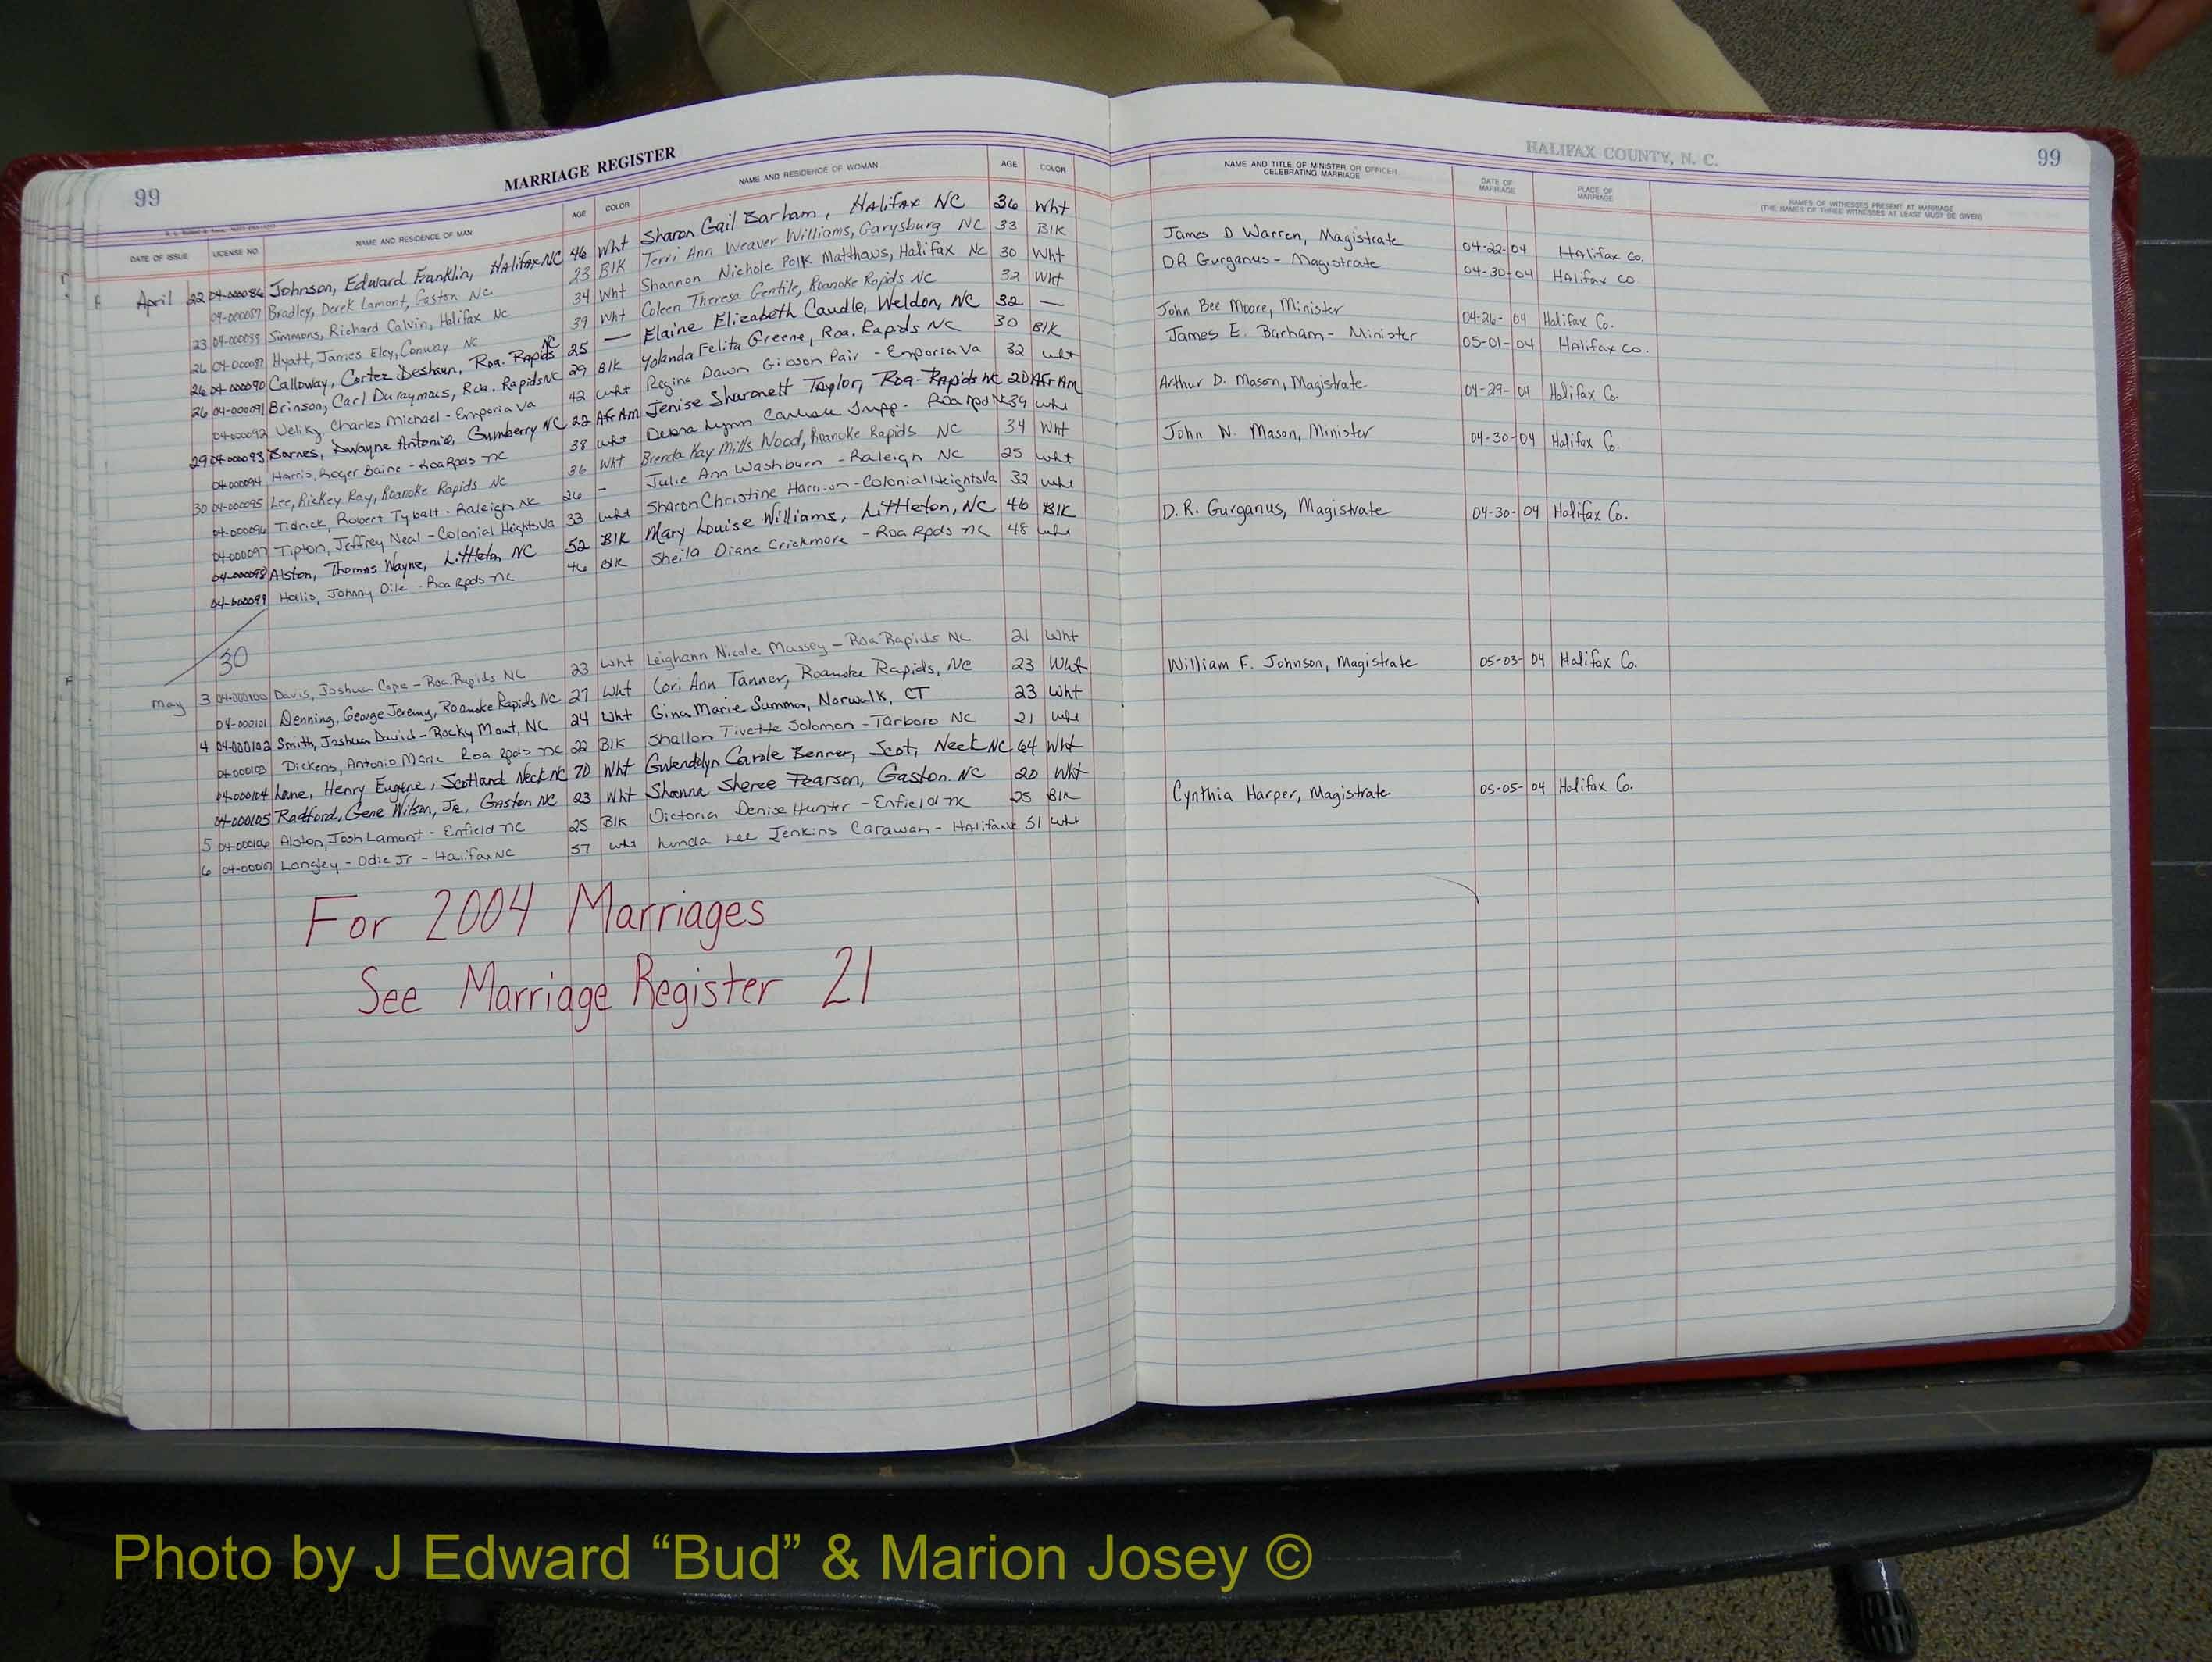 99
MARRIAGE REGISTER
HALIFAX COUNTY, N. C. 99
DATE OF ISSUE LICENSE NO. NAME AND RESIDENCE OF MAN AGE COLOR NAME AND RESIDENCE OF WOMAN AGE COLOR
NAME AND TITLE OF MINISTER OR OFFICER CELEBRATING MARRIAGE DATE OF MARRIAGE PLACE OF MARRIAGE NAMES OF WITNESSES PRESENT AT MARRIAGE (THE NAMES OF THREE WITNESSES AT LEAST MUST BE GIVEN)
April 22 04-000086 Johnson, Edward Franklin, Halifax NC 46 Wht Sharon Gail Barham, Halifax NC 36 Wht James D Warren, Magistrate 04-22-04 Halifax Co.
04-000087 Bradley, Derek Lamont, Gaston NC 23 Blk Terri Ann Weaver Williams, Garysburg NC 33 Blk DR Gurganus - Magistrate 04-30-04 Halifax Co
23 04-000088 Simmons, Richard Calvin, Halifax NC 34 Wht Shannon Nichole Polk Matthews, Halifax NC 30 Wht
26 04-000089 Hyatt, James Eley, Conway NC 39 Wht Coleen Theresa Gentile, Roanoke Rapids NC 32 Wht John Bee Moore, Minister 04-26-04 Halifax Co.
26 04-000090 Calloway, Cortez Deshaun, Roa. Rapids NC 25 — Elaine Elizabeth Caudle, Weldon, NC 32 — James E. Barham - Minister 05-01-04 Halifax Co.
26 04-000091 Brinson, Carl Duraymous, Roa. Rapids NC 29 Blk Yolanda Felita Greene, Roa. Rapids NC 30 Blk
04-000092 Veliky, Charles Michael - Emporia Va 42 Wht Regina Dawn Gibson Pair - Emporia Va 32 Wht Arthur D. Mason, Magistrate 04-29-04 Halifax Co
29 04-000093 Barnes, Dwayne Antonio, Gumberry NC 22 Afr Am Jenise Sharonett Taylor, Roa-Rapids NC 20 Afr Am
04-000094 Harris, Roger Baine - Roa Rpds NC 38 Wht Debra Lynn Tripp - Roa Rpd NC 39 Wht John N. Mason, Minister 04-30-04 Halifax Co.
30 04-000095 Lee, Rickey Ray, Roanoke Rapids NC 36 Wht Brenda Kay Mills Wood, Roanoke Rapids NC 34 Wht
04-000096 Tidrick, Robert Tybalt - Raleigh NC 26 - Julie Ann Washburn - Raleigh NC 25 Wht
04-000097 Tipton, Jeffrey Neal - Colonial Heights Va 33 Wht Sharon Christine Harrison - Colonial Heights Va 32 Wht D.R. Gurganus, Magistrate 04-30-04 Halifax Co.
04-000098 Alston, Thomas Wayne, Littleton, NC 52 Blk Mary Louise Williams, Littleton, NC 46 Blk
04-000099 Hollis, Johnny Dile - Roa Rpds NC 46 Blk Sheila Diane Crickmore - Roa Rpds NC 48 Wht
30
May 3 04-000100 Davis, Joshua Cope - Roa. Rapids NC 23 Wht Leighann Nicole Massey - Roa Rapids NC 21 Wht
04-000101 Denning, George Jeremy, Roanoke Rapids NC 27 Wht Lori Ann Tanner, Roanoke Rapids, NC 23 Wht William F. Johnson, Magistrate 05-03-04 Halifax Co.
4 04-000102 Smith, Joshua David - Rocky Mount, NC 24 Wht Gina Marie Summa, Norwalk, CT 23 Wht
04-000103 Dickens, Antonio Maric Roa Rpds NC 22 Blk Shallon Tivette Solomon - Tarboro NC 21 Wht
04-000104 Lane, Henry Eugene, Scotland Neck NC 70 Wht Gwendolyn Carole Benner, Scot, Neck NC 64 Wht
04-000105 Radford, Gene Wilson, Jr., Gaston NC 23 Wht Shanna Sheree Pearson, Gaston NC 20 Wht
5 04-000106 Alston, Josh Lamont - Enfield NC 25 Blk Victoria Denise Hunter - Enfield NC 25 Blk Cynthia Harper, Magistrate 05-05-04 Halifax Co.
6 04-000107 Langley - Odie Jr - Halifax NC 57 Wht Linda Lee Jenkins Carawan - Halifax NC 51 Wht
For 2004 Marriages
See Marriage Register 21
Photo by J Edward “Bud” & Marion Josey ©